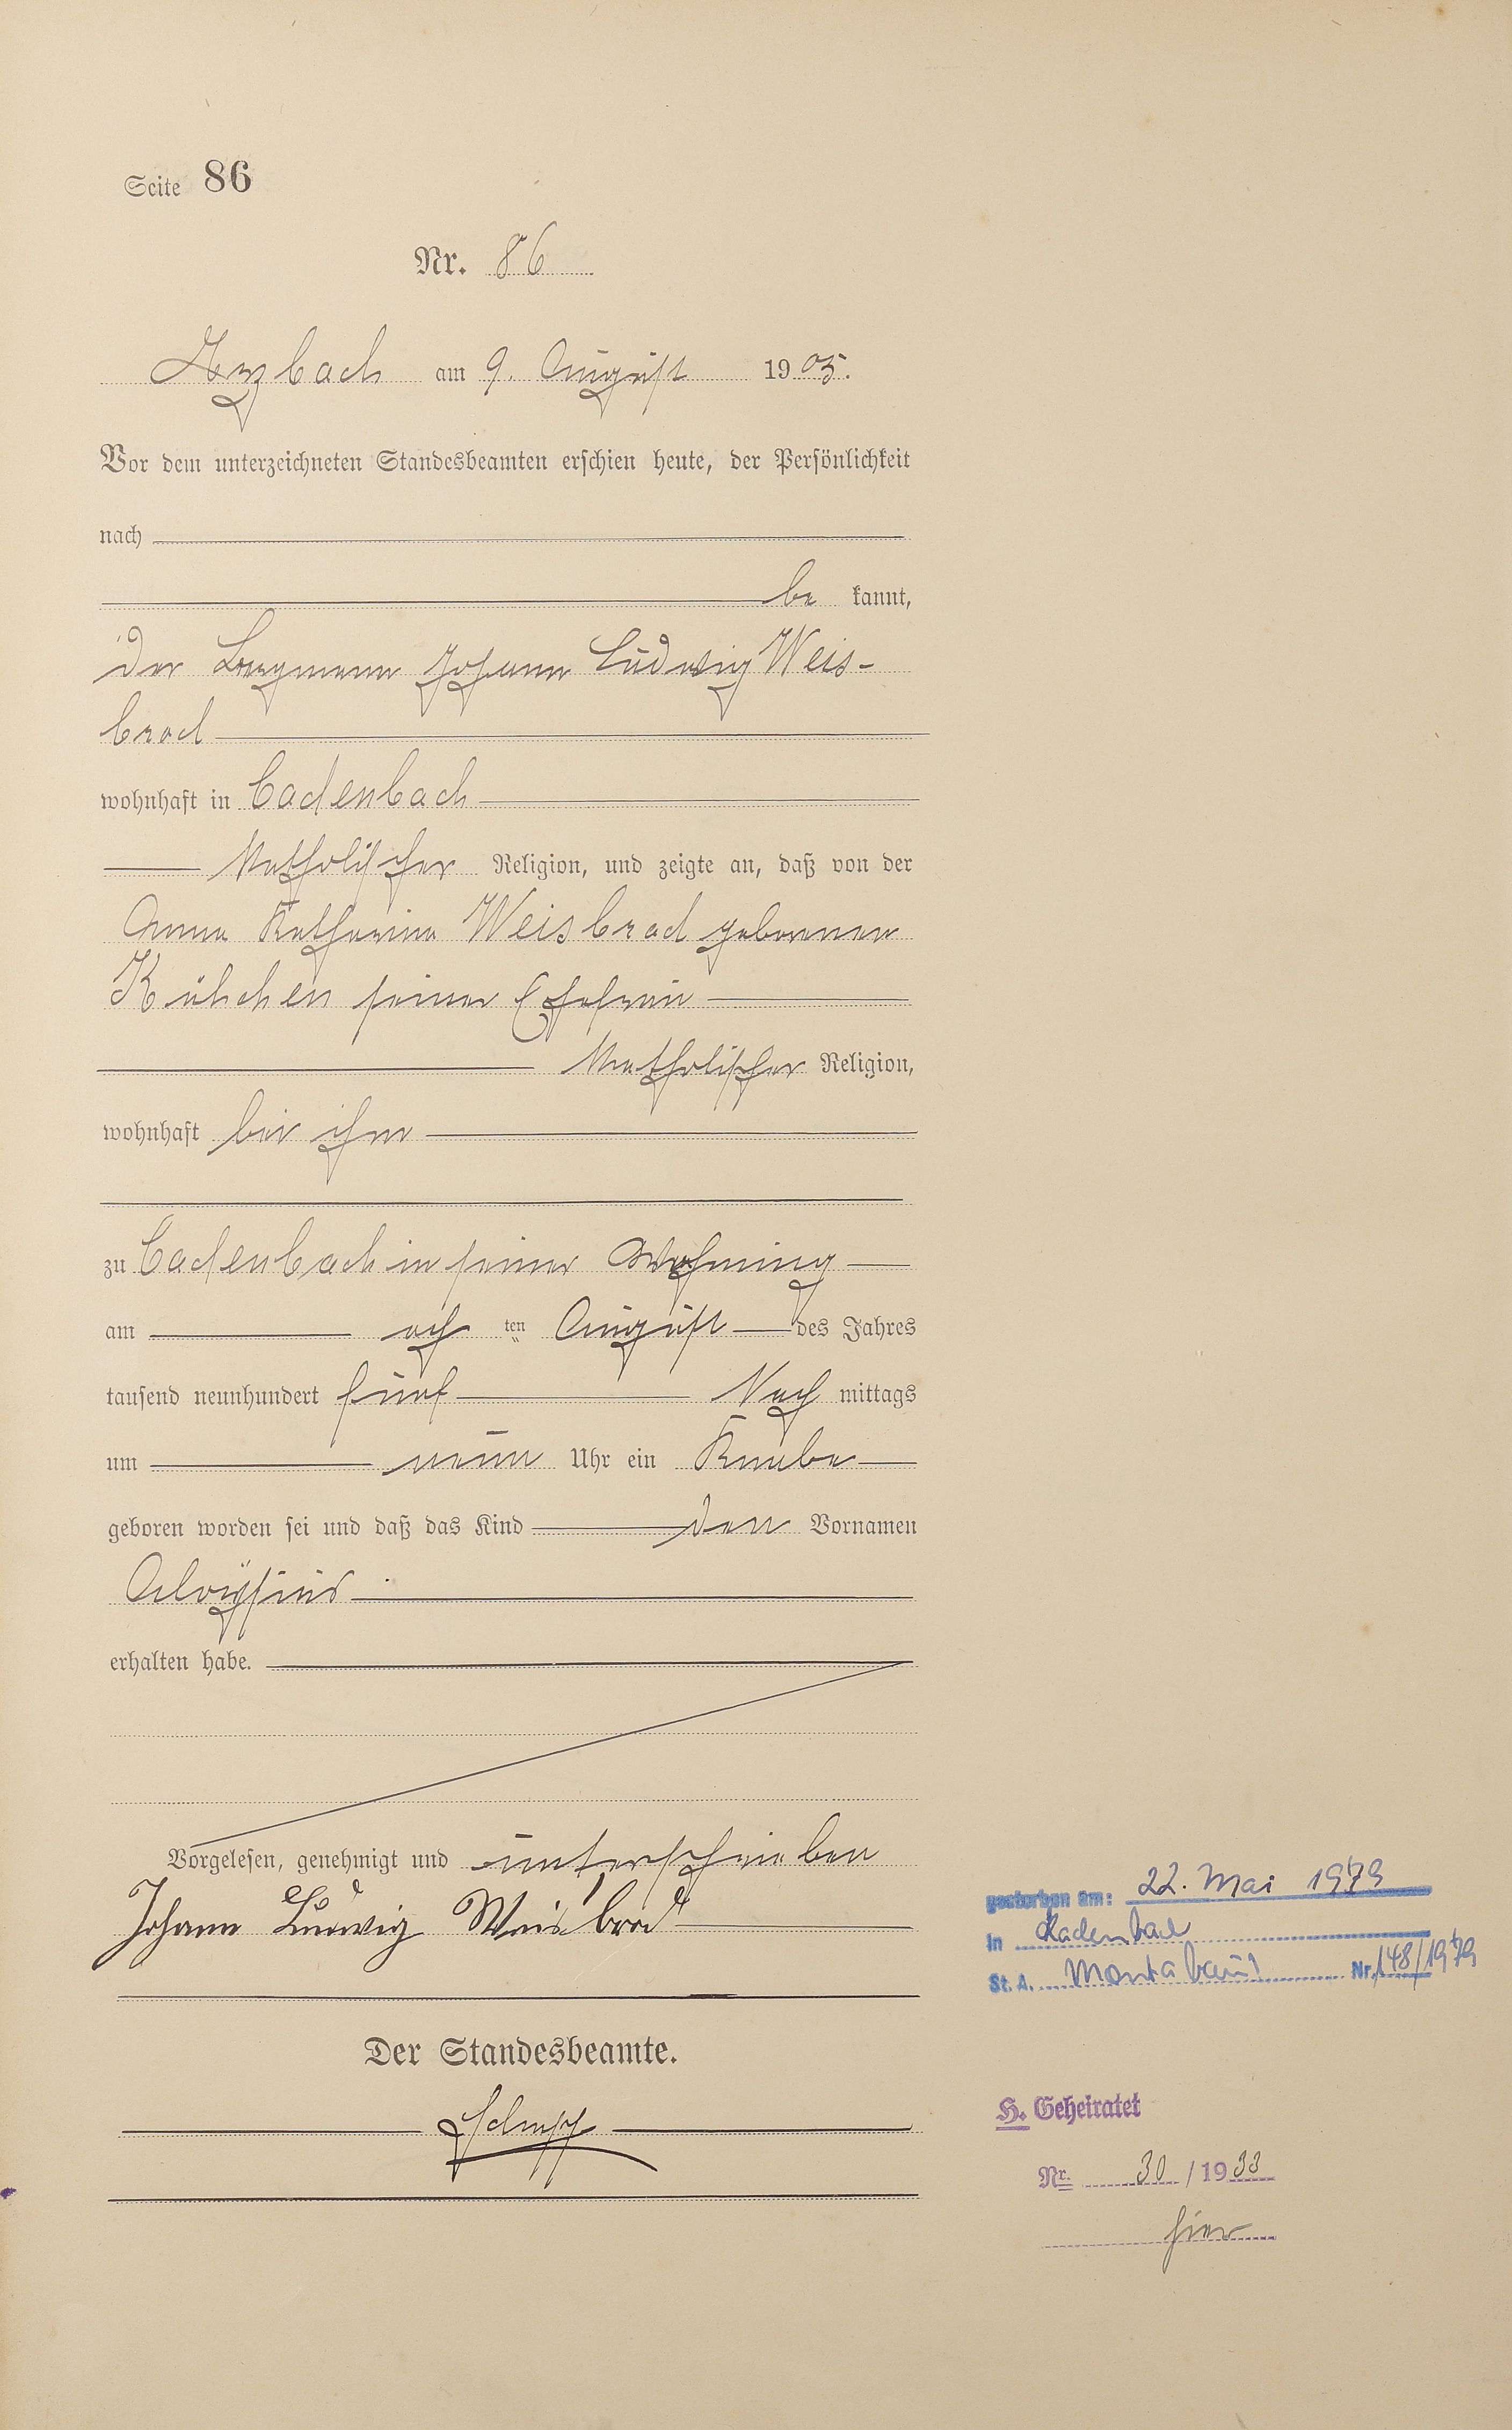 Seite 86
Nr. 86
Arzbach am 9. August 1905.
Vor dem unterzeichneten Standesbeamten erschien heute, der Persönlichkeit
nach
be kannt,
der Bergmann Johann Ludwig Weis-
brod
wohnhaft in Cadenbach
katholischer Religion, und zeigte an, daß von der
Anna Katharina Weisbrod geborenen
Külchen seiner Ehefrau
katholischer Religion,
wohnhaft bei ihm
zu Cadenbach in seiner Wohnung
am ach ten August des Jahres
tausend neunhundert fünf Nach mittags
um neun Uhr ein Knabe
geboren worden sei und daß das Kind den Vornamen
Aloysius
erhalten habe.
Vorgelesen, genehmigt und unterschrieben
Johann Ludwig Weisbrod
Der Standesbeamte.
gestorben am: 22. Mai 1979
in Kadenbach
St. A. Montabaur Nr. 148/1979
H. Geheiratet
Nr. 30 / 1933
hier